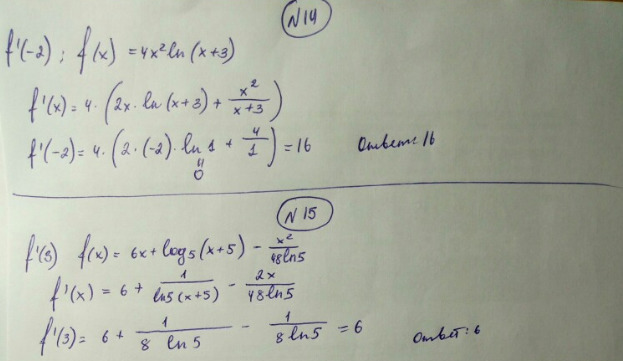 N14
f'(-2); f(x) = 4x² ln(x+3)
f'(x) = 4·(2x·ln(x+3) + x²/(x+3))
f'(-2) = 4·(2·(-2)·ln 1 + 4/1) = 16 Ответ: 16
"
0
N15
f'(3) f(x) = 6x + log₅(x+5) - x²/(48ln5)
f'(x) = 6 + 1/(ln5(x+5)) - 2x/(48ln5)
f'(3) = 6 + 1/(8 ln5) - 1/(8ln5) = 6 Ответ: 6